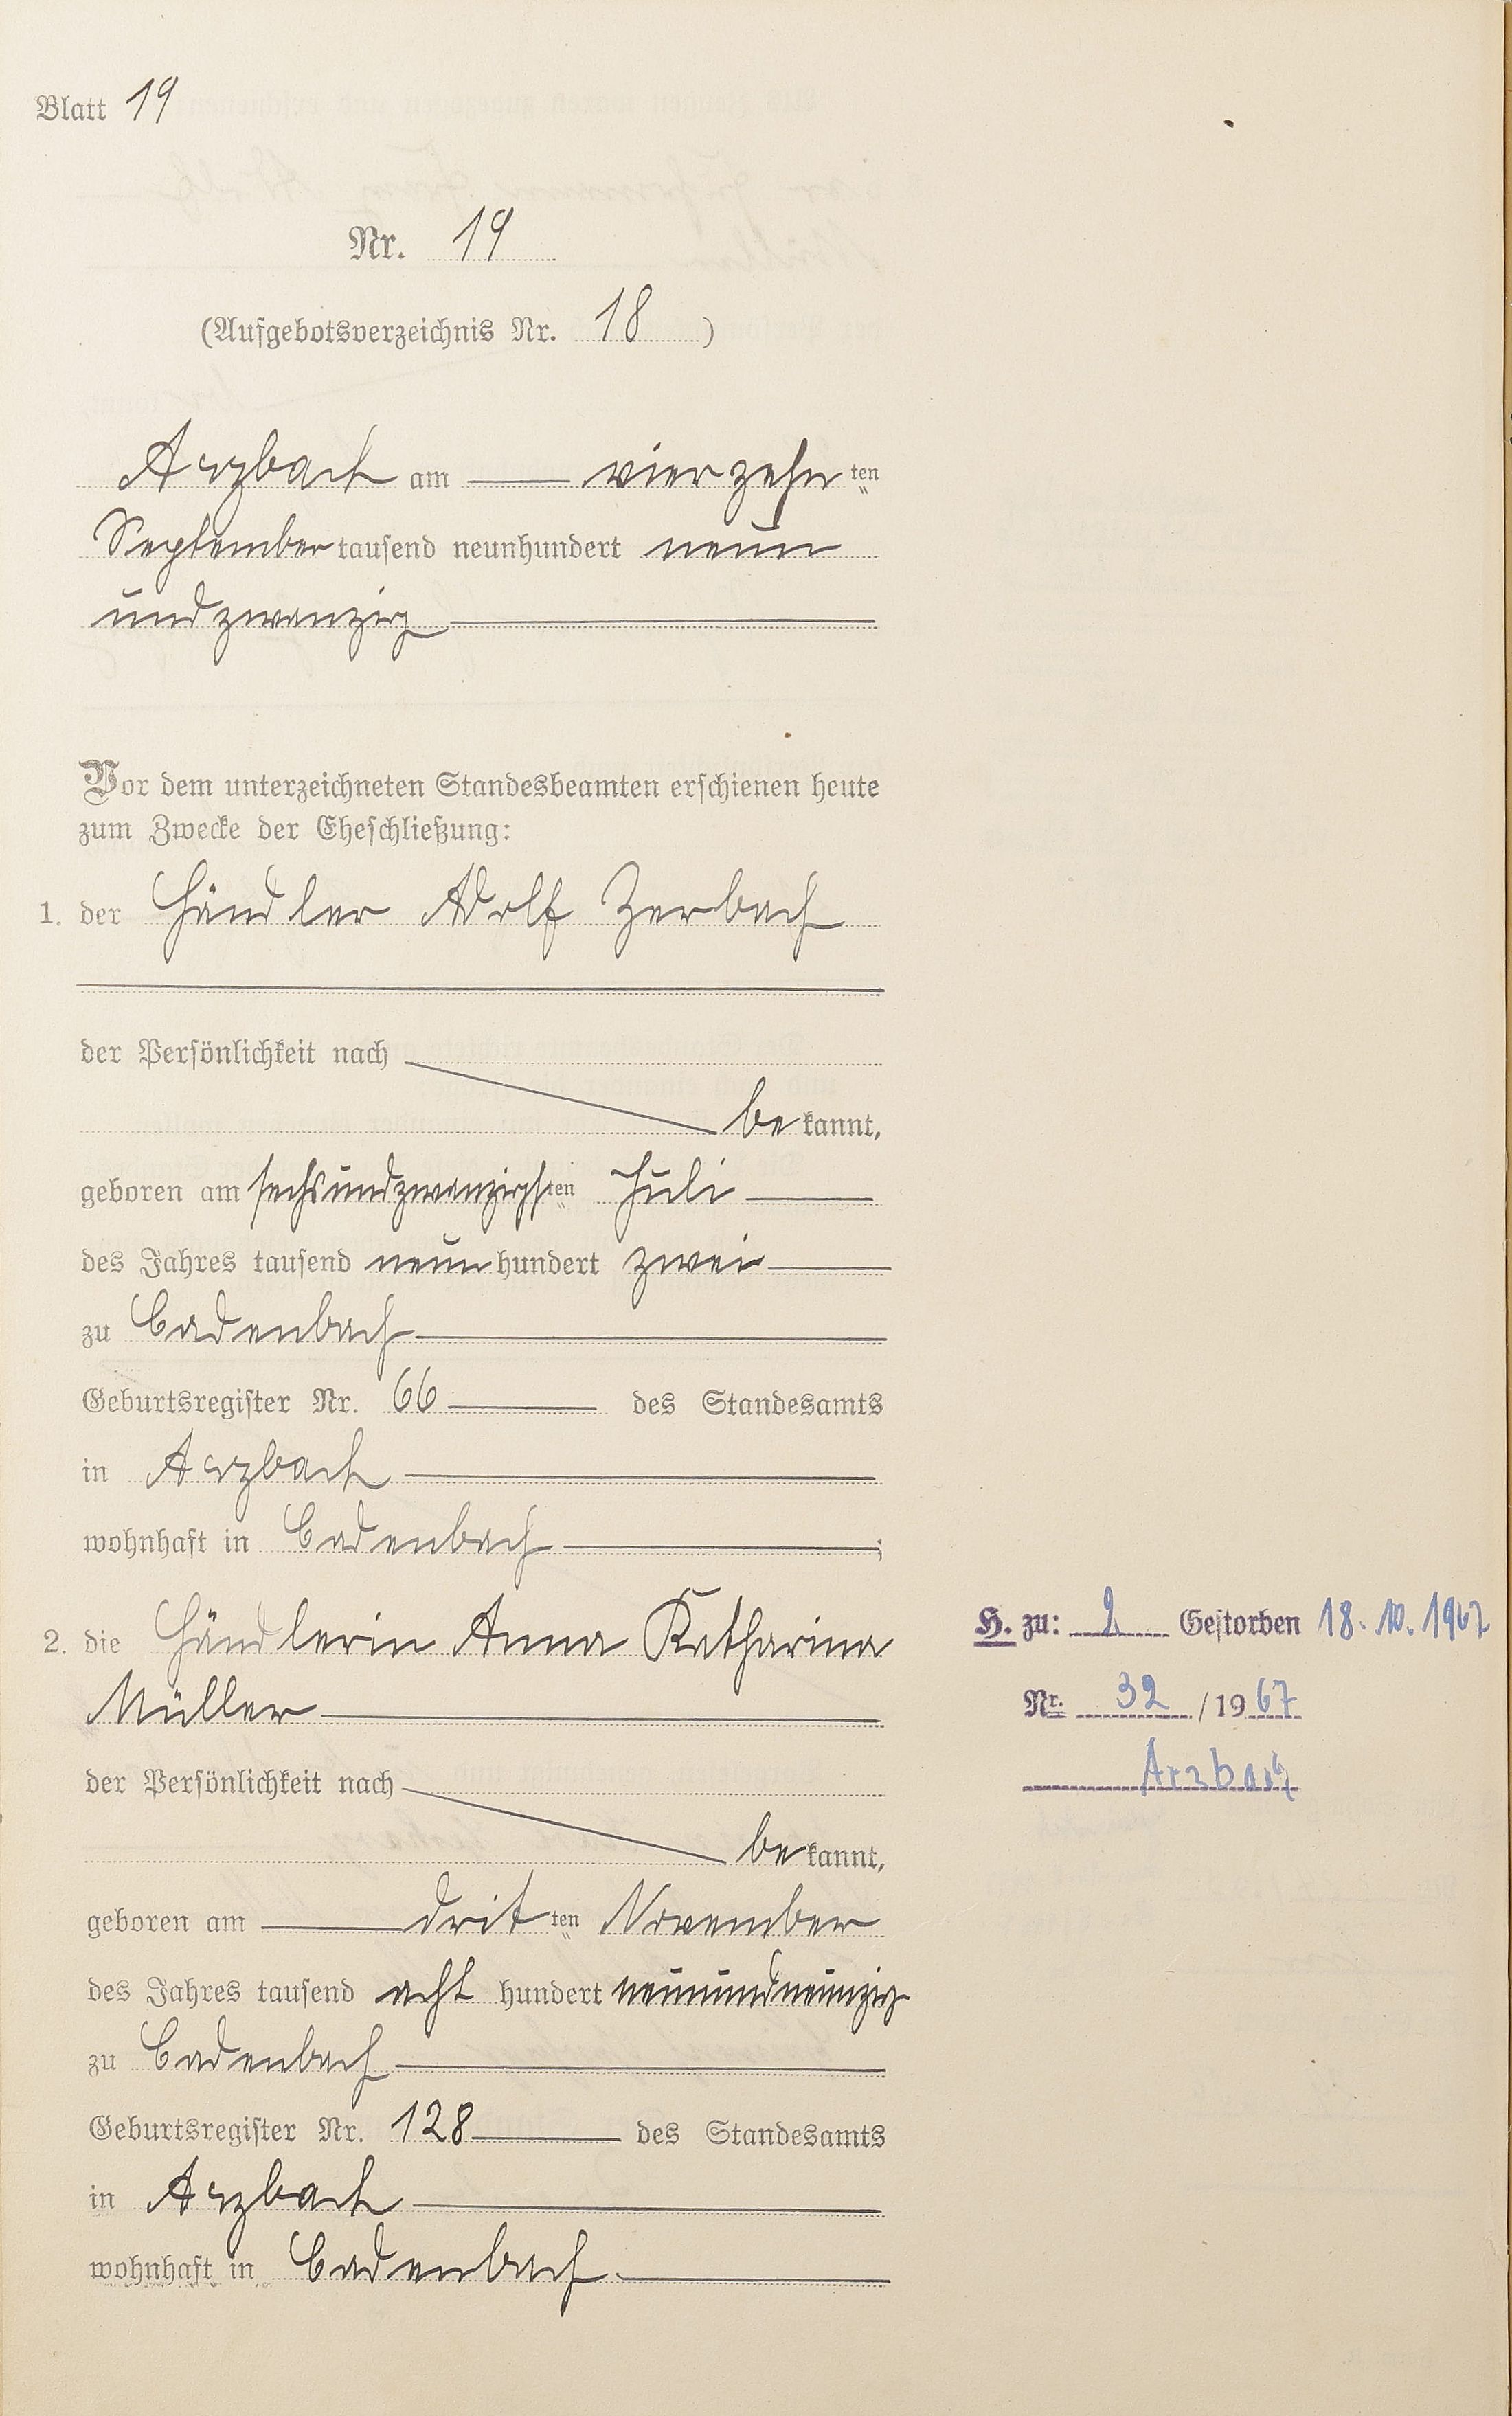 Blatt 19
Nr. 19
(Aufgebotsverzeichnis Nr. 18)
Arzbach am vierzehnten
September tausend neunhundert neun
undzwanzig
Vor dem unterzeichneten Standesbeamten erschienen heute
zum Zwecke der Eheschließung:
1. der Händler Adolf Zerbach
der Persönlichkeit nach
bekannt,
geboren am sechsundzwanzigsten Juli
des Jahres tausend neunhundert zwei
zu Cadenbach
Geburtsregister Nr. 66 des Standesamts
in Arzbach
wohnhaft in Cadenbach;
2. die Händlerin Anna Katharina
Müller
der Persönlichkeit nach
bekannt,
geboren am dritten November
des Jahres tausend acht hundert neunundneunzig
zu Cadenbach
Geburtsregister Nr. 128 des Standesamts
in Arzbach
wohnhaft in Cadenbach
H. zu: 2 Gestorben 18.10.1967
Nr. 32 / 1967
Arzbach